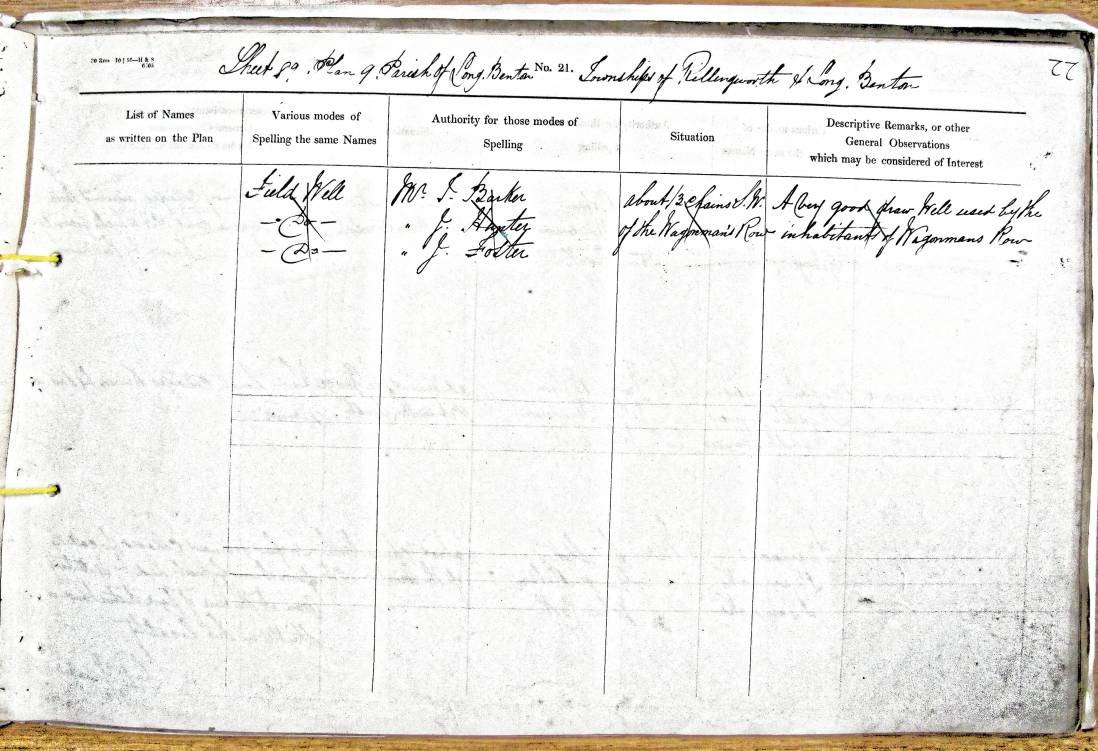 Sheet 89. Plan 9. Parish of Long Benton No. 21. Townships of Killingworth & Long Benton
22
List of Names
as written on the Plan
Various modes of
Spelling the same Names
Authority for those modes of
Spelling
Situation
Descriptive Remarks, or other
General Observations
which may be considered of Interest
Field Well
Mr. T. Barker
about 13 chains S.W.
A Very good draw Well used by the
— Do —
" J. Hunter
of the Wagonman's Row
inhabitants of Wagonmans Row
— Do —
" J. Foster